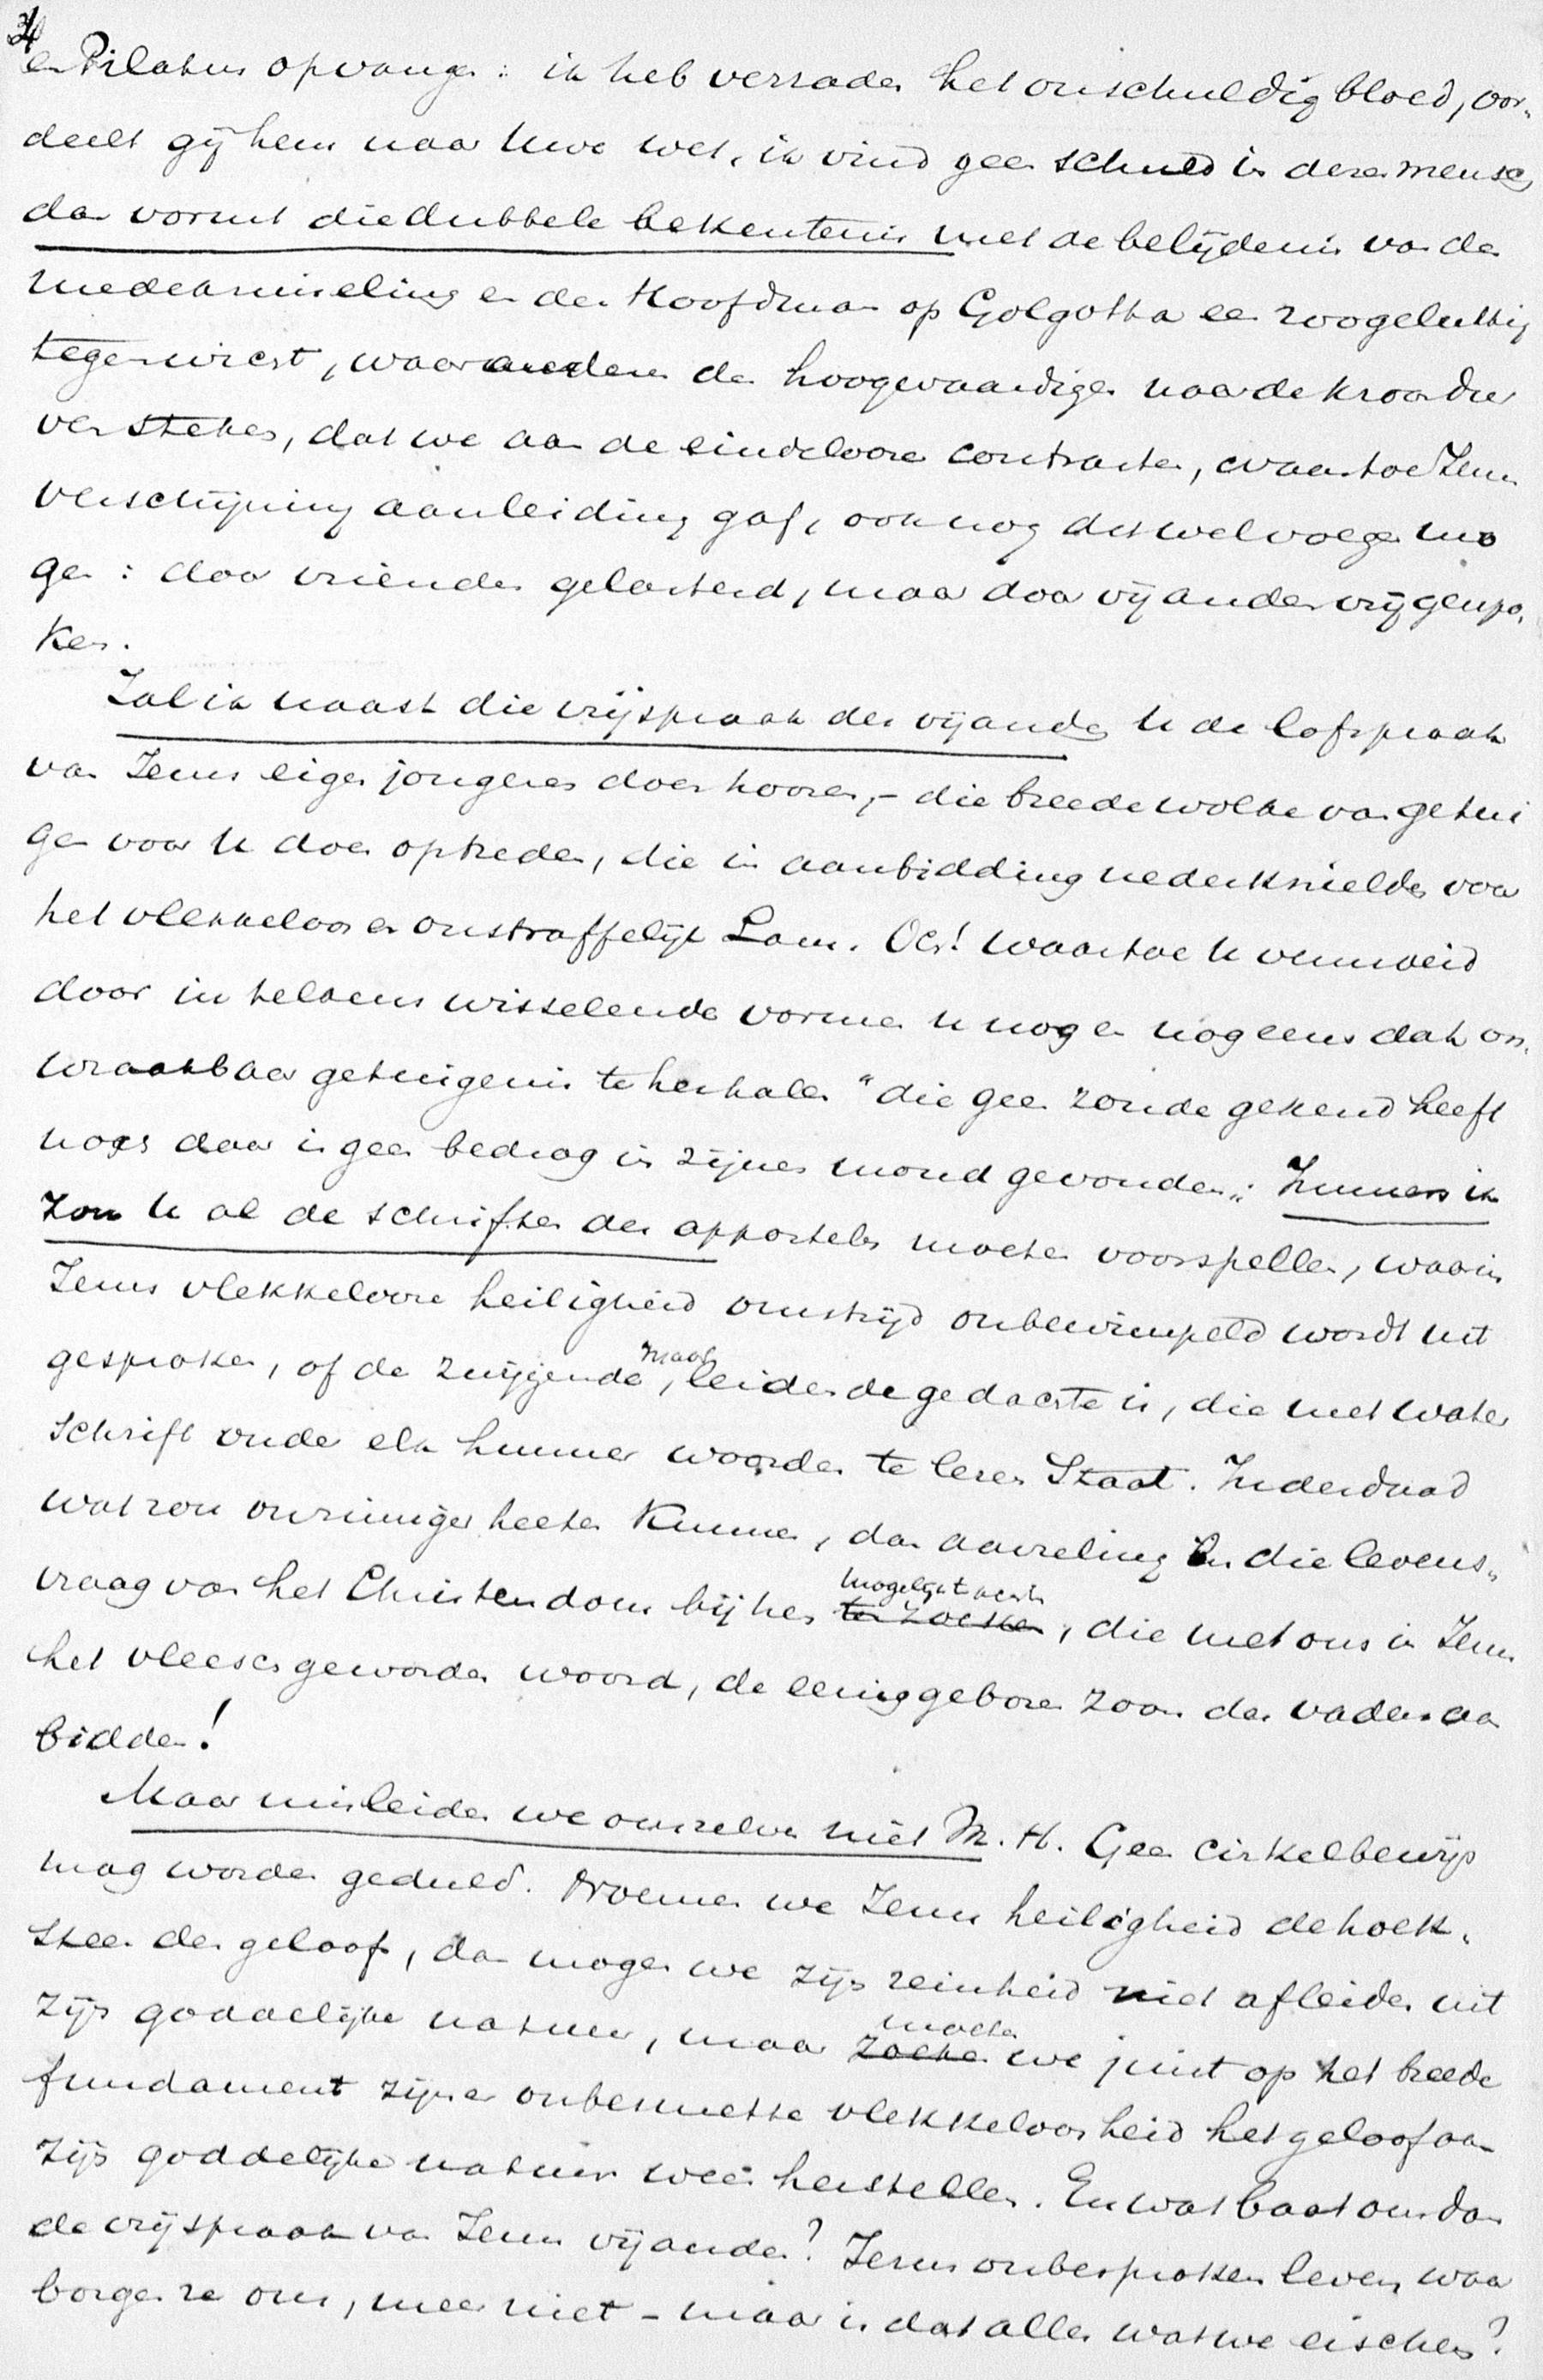 34
en Pilatus opvangen: ik heb verraden het onschuldig bloed, oor-
deelt gij hem naar Uwe wet, ik vind geen schuld in dezen mensch
dan vormt die dubbele bekentenis met de belijdenis van den
medekruiseling en den Hoofdman op Golgotha een zoo geluttig
tegenwicht, waar anderen den hoogwaardigen naar de kroon
versteken, dat we aan de eindeloose contrasten, waartoe Jezus
verschijning aanleiding gaf, ook nog dit wel voegen mo
gen: door vrienden gelasterd, maar door vijanden vrijgespro-
ken.
Zal ik naast die vrijspraak der vijanden U de lofspraak
van Jezus eigen jongeren doen hooren, - die breede wolke van getui
gen voor U doen optreden, die in aanbidding nederknielden voor
het vlekkeloos en onstraffelijk Lam. Och! waartoe U vermoeid
door in telkens wisselende vormen U nog en nog eens dat on-
wraakbaar getuigenis te herhalen "die geen zonde gekend heeft
noch daar is geen bedrog in zijnen mond gevonden": Immers ik
zou U al de schriften der apostelen moeten voorspellen, waarin
Jezus vlekkeloose heiligheid omstrijd onbewimpeld wordt uit
gesproken, of de zwijgende, maar leidende gedachte is, die met water
schrift onder elk hunner woorden te lezen Staat. Inderdaad
wat zou onzinniger heeten kunnen, dan aarzeling in die levens-
vraag van het Christendom bij hen te zoeken mogelijk te achten, die met ons in Jezus
het vleesch geworden woord, de eeniggeboren zoon des vaders aan
bidden!
Maar misleiden we onszelven niet M. H. Geen cirkelbewijs
mag worden geduld. Noemen we Jezus heiligheid de hoek-
steen des geloofs, dan mogen we zijn reinheid niet afleiden uit
zijn goddelijke natuur, maar zoeken moeten we juist op het breede
fundament zijner onbesmette vlekkeloosheid het geloof aan
zijn goddelijke natuur weer herstellen. En wat baat ons dan
de vrijspraak van Jezus vijanden? Jezus onbesproken leven waar
borgen ze ons, meer niet - maar is dat alles wat we eischen?